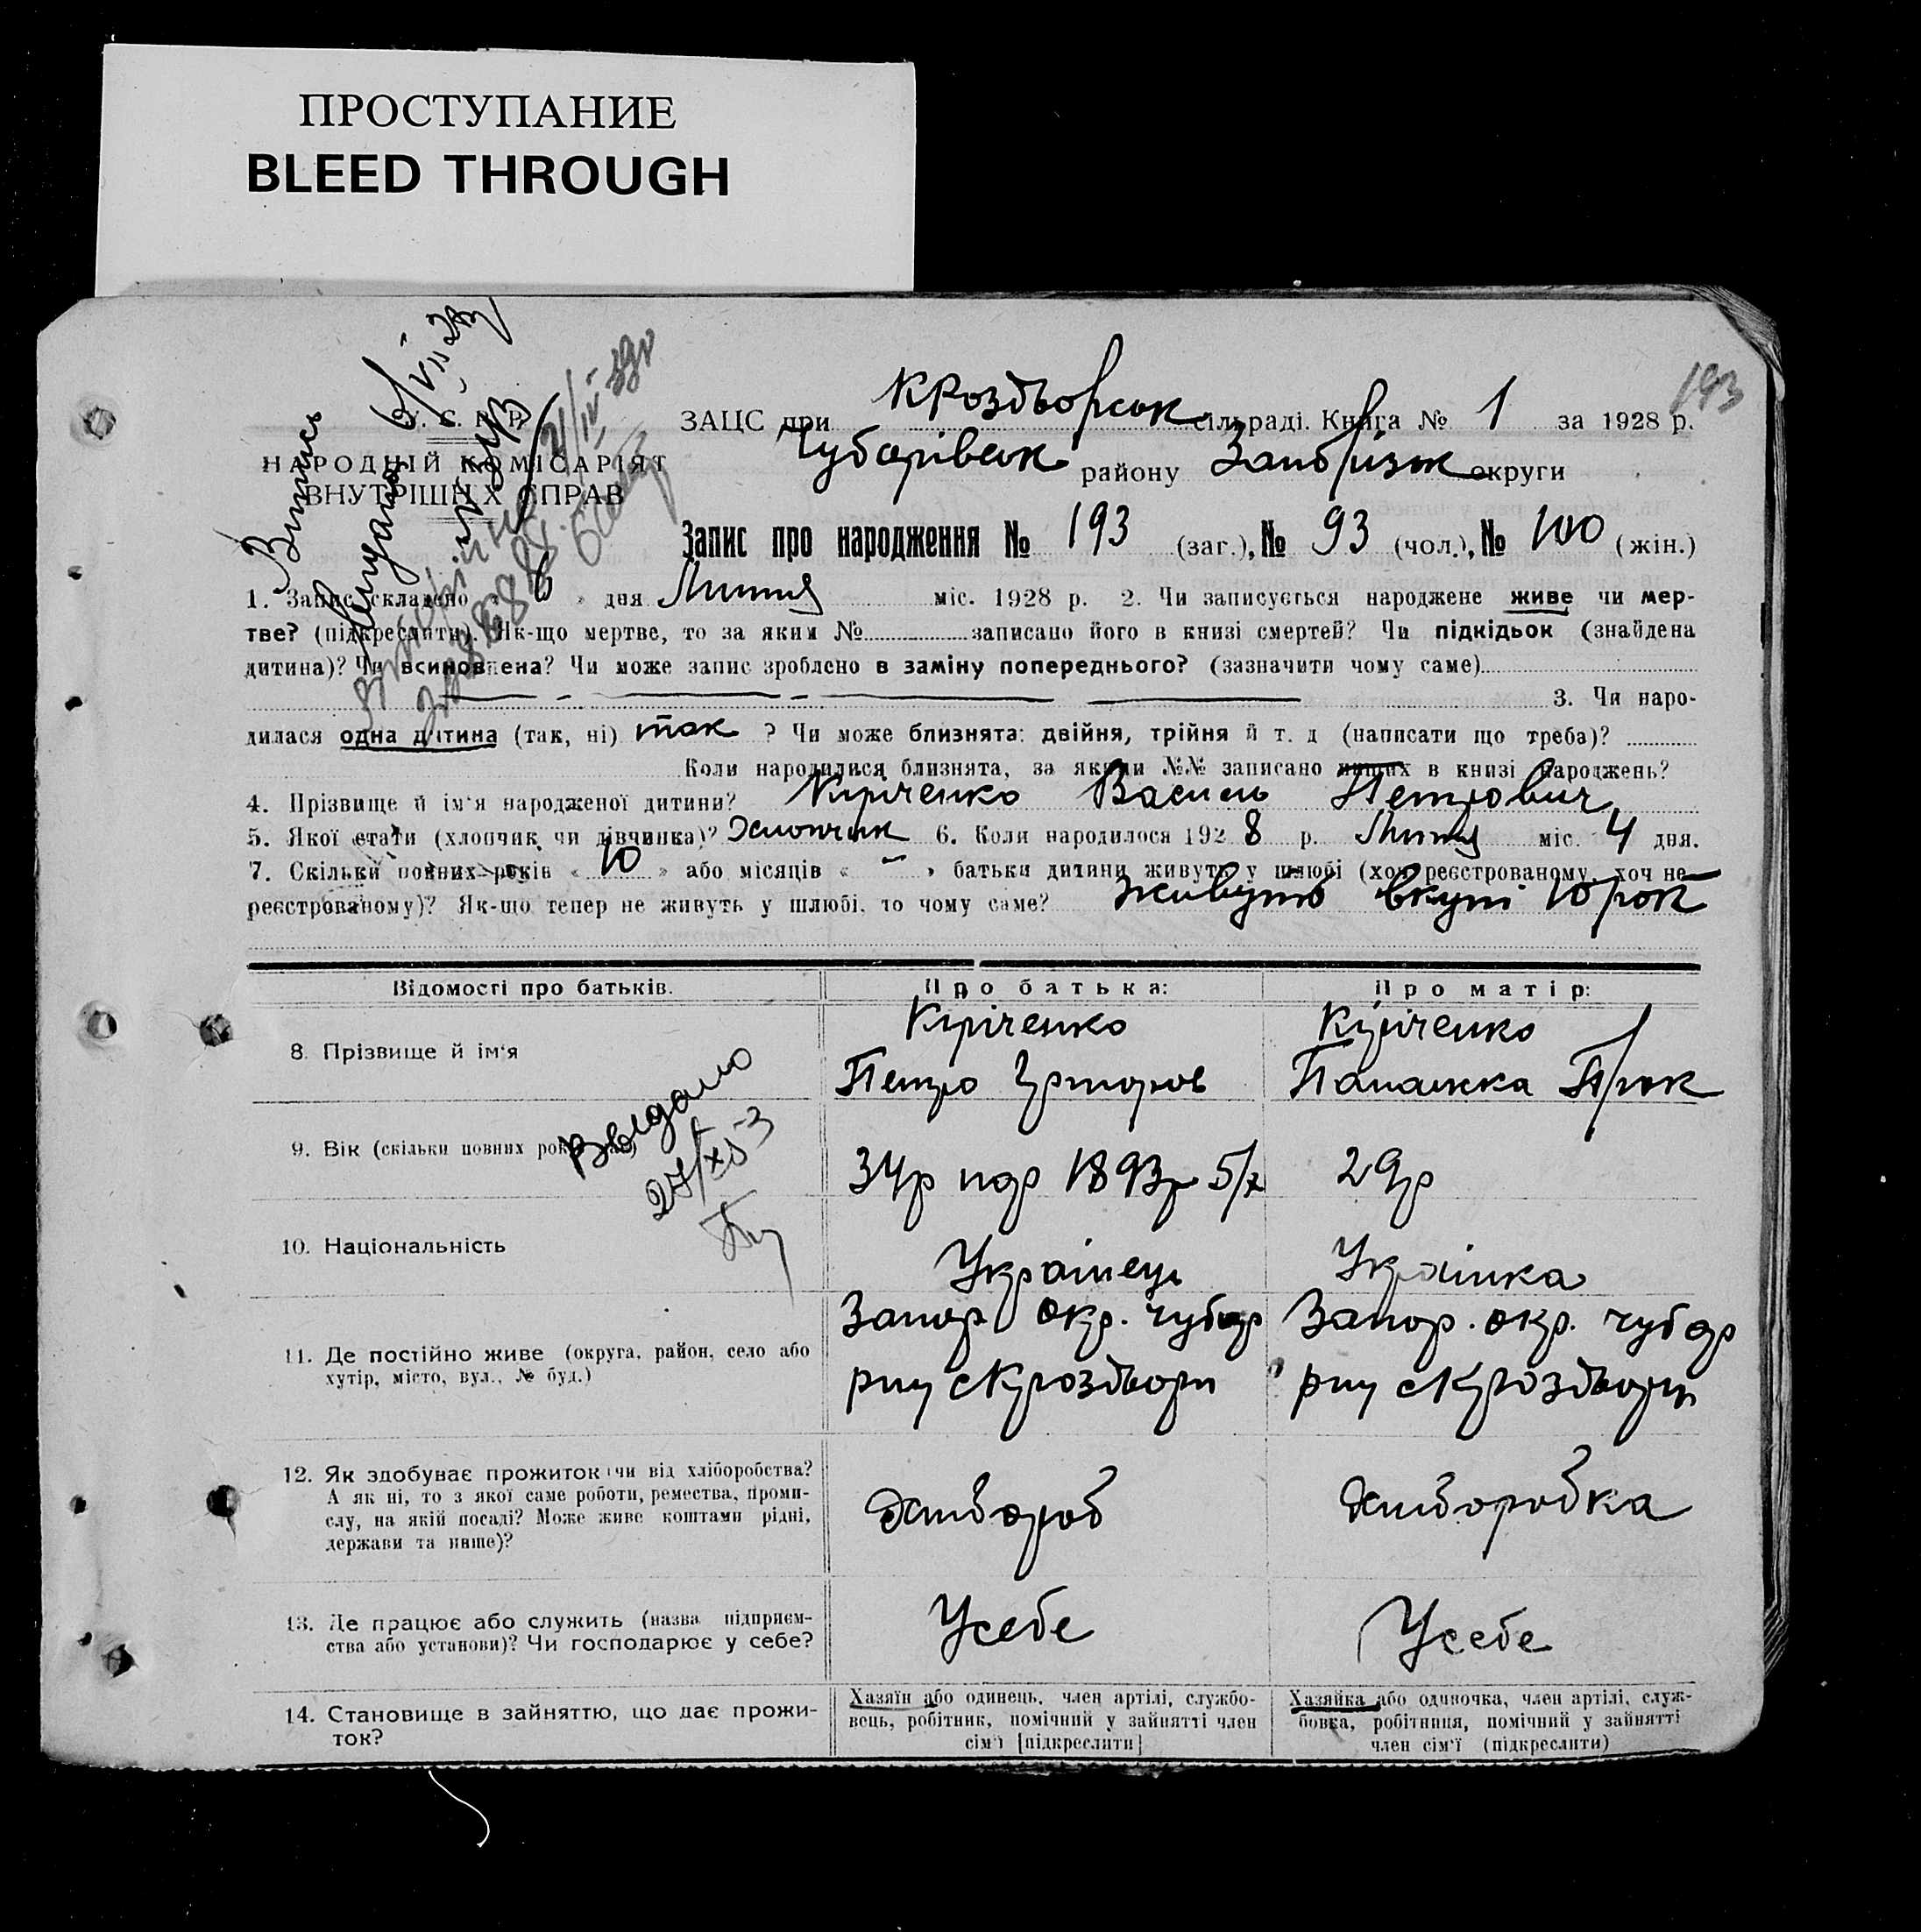 ПРОСТУПАНИЕ
BLEED THROUGH
193
У. С. Р. Р.
НАРОДНІЙ КОМІСАРІЯТ
ВНУТРІШНІХ СПРАВ
Випись
видана 6/VII 28
ЗАЦС при Кроздворськ сільраді. Книга № 1 за 1928 р.
Чубарівськ району Запорізьк округи
Запис про народження № 193 (заг.), № 93 (чол.), № 100 (жін.)
1. Запис складено « 6 » дня Липня міс. 1928 р. 2. Чи записується народжене живе чи мер-
тве? (підкреслити). Як-що мертве, то за яким № записано його в книзі смертей? Чи підкідьок (знайдена
дитина)? Чи всиновлена? Чи може запис зроблено в заміну попереднього? (зазначити чому саме)
3. Чи наро-
дилася одна дитина (так, ні) так ? Чи може близнята: двійня, трійня й т. д (написати що треба)?
Коли народилися близнята, за якими №№ записано инших в книзі народжень?
4. Прізвище й ім'я народженої дитини? Кіріченко Василь Петрович
5. Якої статі (хлопчик чи дівчинка)? Хлопчик 6. Коли народилося 1928 р. Липня міс. 4 дня.
7. Скільки повних років « 10 » або місяців « – » батьки дитини живуть у шлюбі (хоч реєстрованому, хоч не-
реєстрованому)? Як-що тепер не живуть у шлюбі, то чому саме? Живуть вкупі 10 рок
Відомості про батьків. Про батька: Про матір:
8. Прізвище й ім'я
Кіріченко
Петро Григоров
Кіріченко
Палажка Прок
Выдано
27/XI 53
9. Вік (скільки повних років
34р нар 1893р 5/х
29р
10. Національність
Українець
Українка
11. Де постійно живе (округа, район, село або
хутір, місто, вул., № буд.)
Запор окр. чубар
рну с Кроздори
Запор. окр. чубар
рну с Кроздори
12. Як здобуває прожиток чи від хліборобства?
А як ні, то з якої саме роботи, ремества, проми-
слу, на якій посаді? Може живе коштами рідні,
держави та инше)?
Хлібороб
Хліборобка
13. Де працює або служить (назва підприєм-
ства або установи)? Чи господарює у себе?
Усебе
Усебе
14. Становище в зайняттю, що дає прожи-
ток?
Хазяїн або одинець, член артілі, службо-
вець, робітник, помічний у зайнятті член
сім'ї [підкреслити]
Хазяйка або одиночка, член артілі, служ-
бовка, робітниця, помічний у зайнятті
член сім'ї (підкреслити)